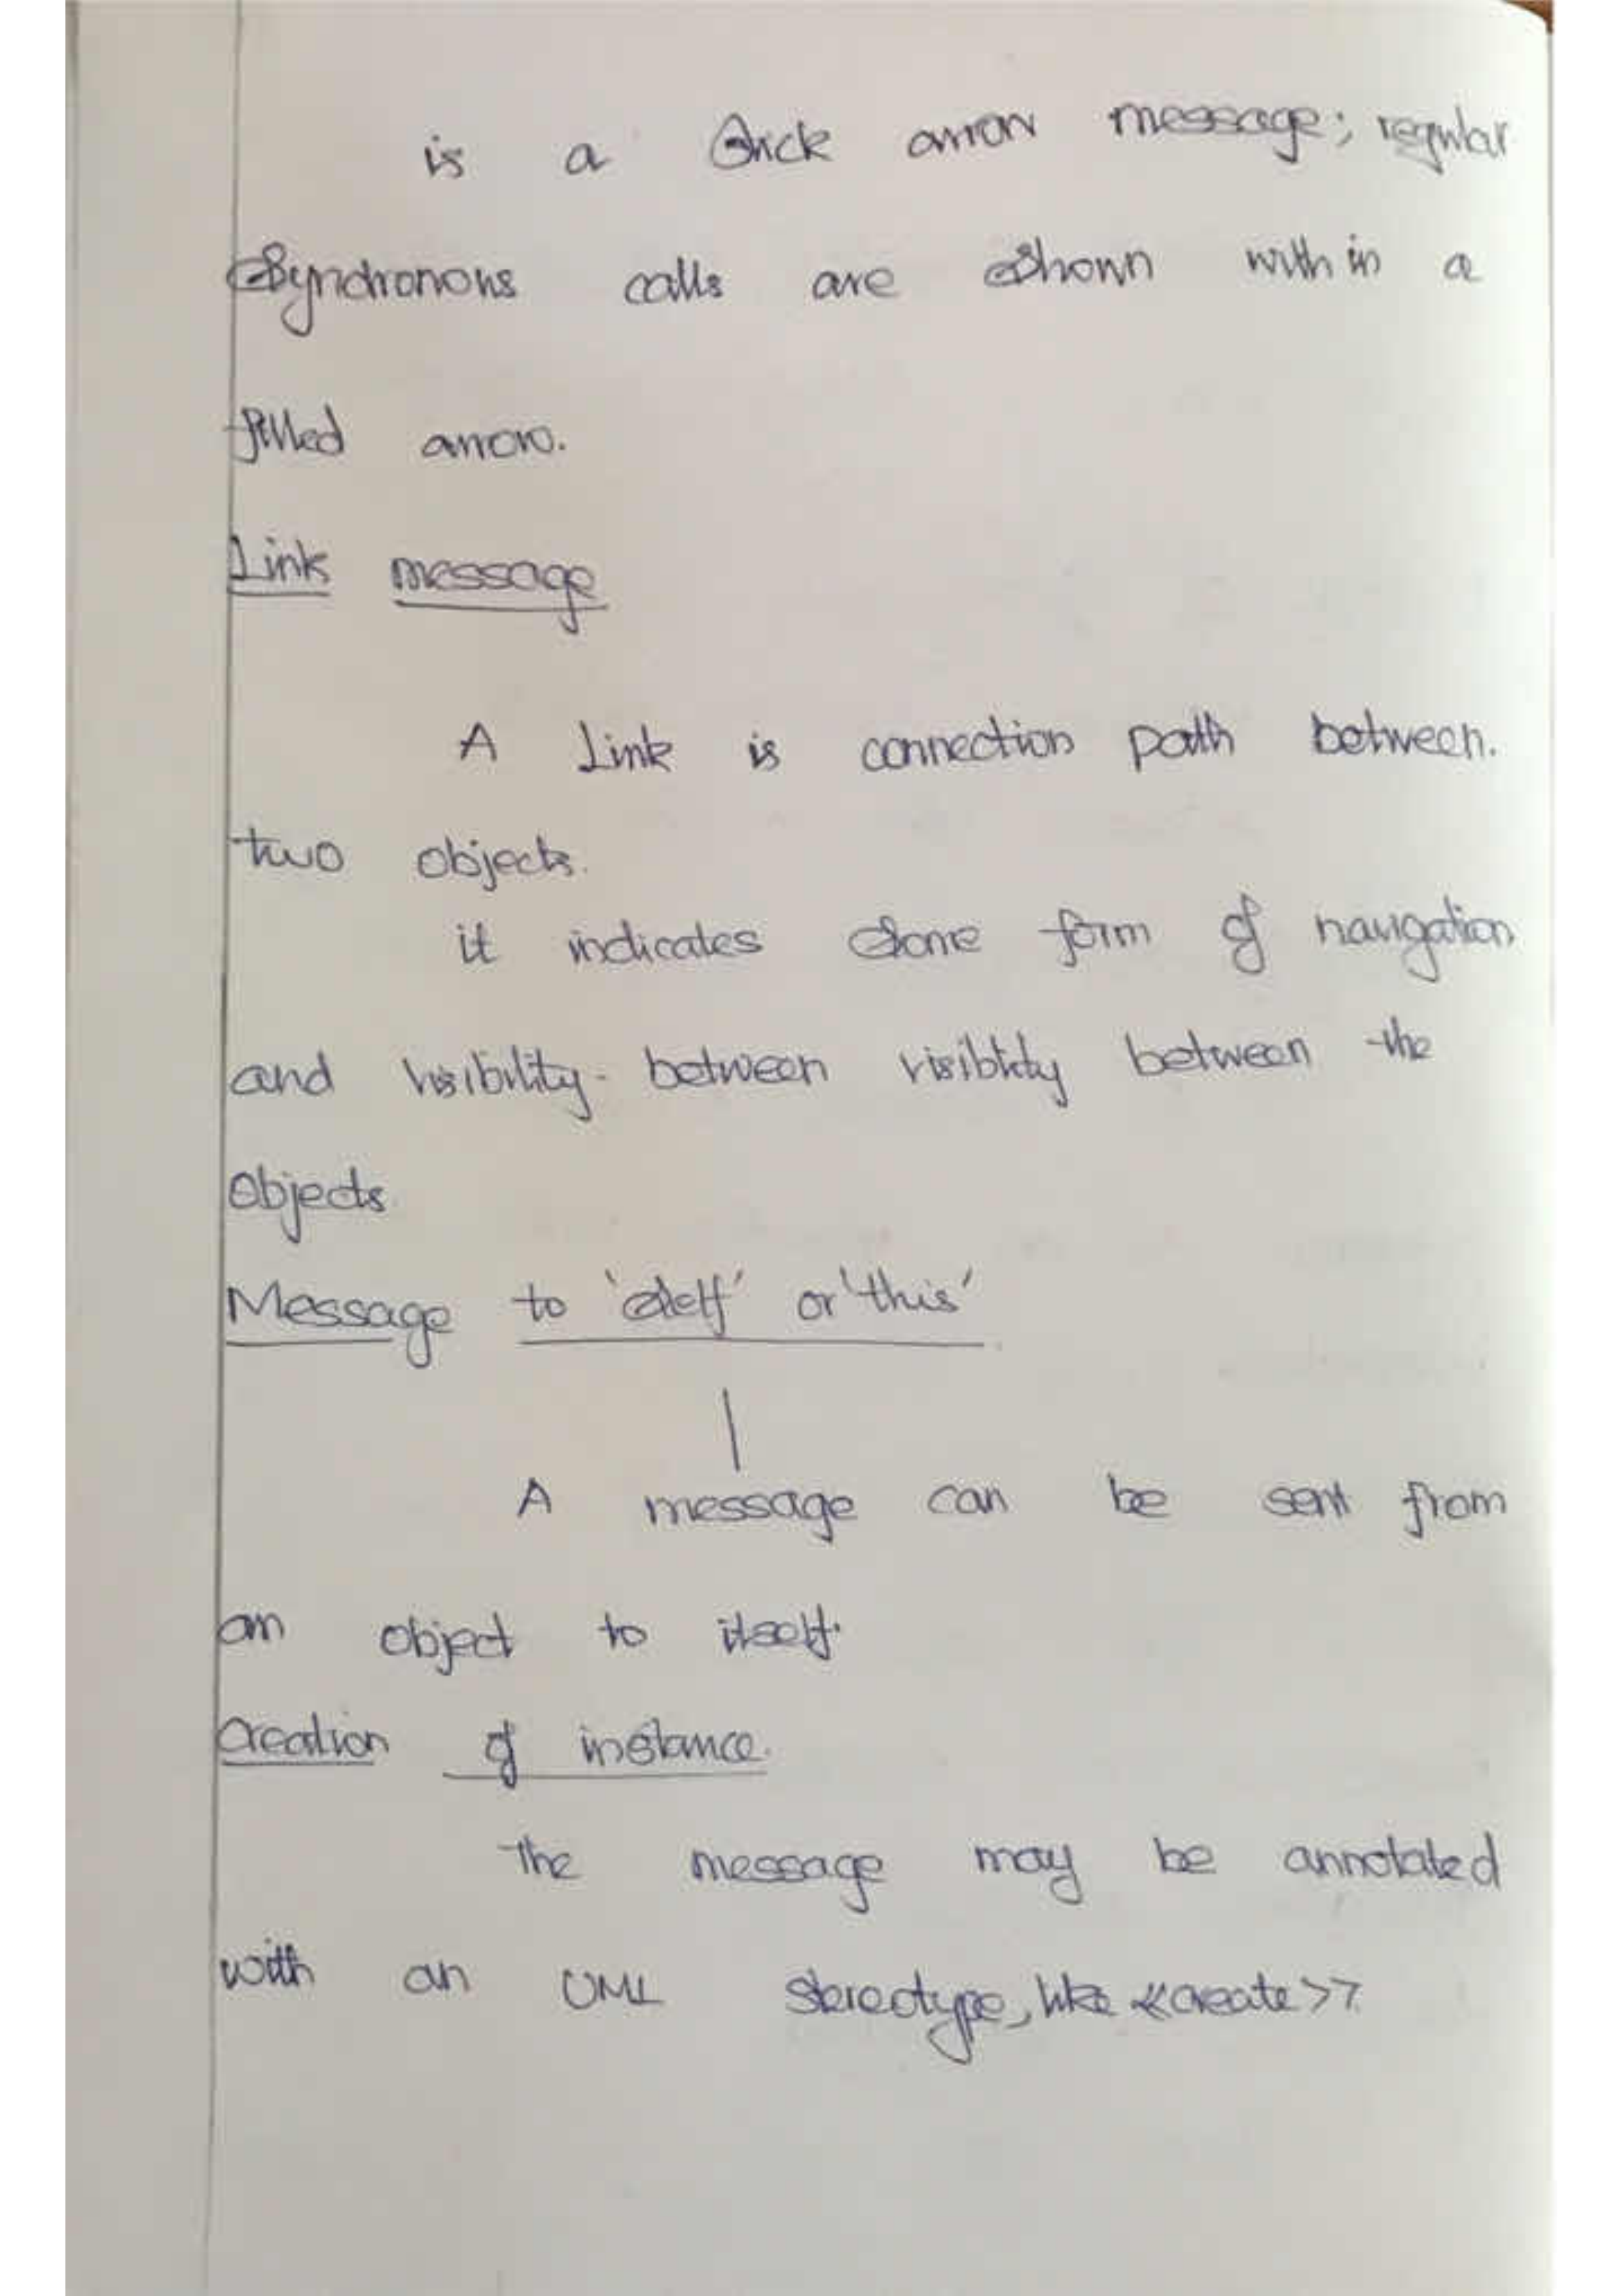 is a stick arrow message; regular
Synchronous calls are shown with in a
filled arrow.
Link message
A Link is connection path between.
two objects.
it indicates some form of navigation
and visibility. between visiblity between the
objects.
Message to 'self' or 'this'
A message can be sent from
an object to itself.
Creation of instance.
The message may be annotated
with an UML stereotype, like <<create>>